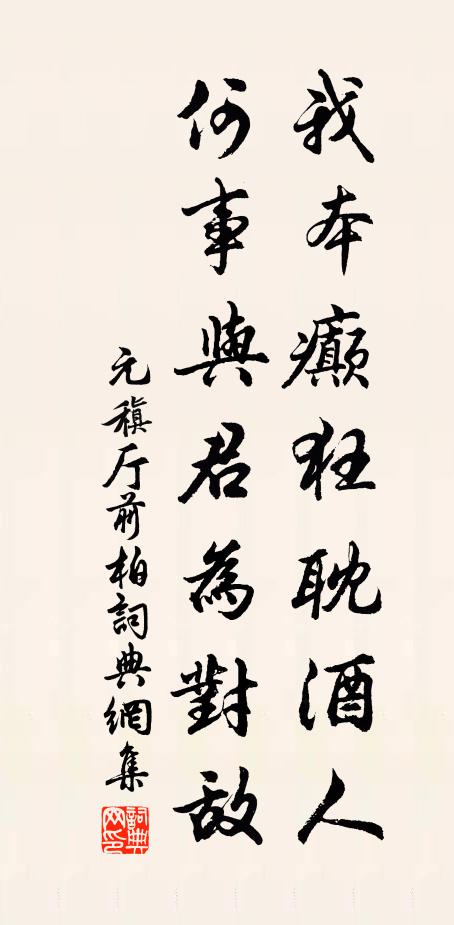 我本癲狂耽酒人
何事與君為對敵
元稹厅前柏詞典網集
詞典网印